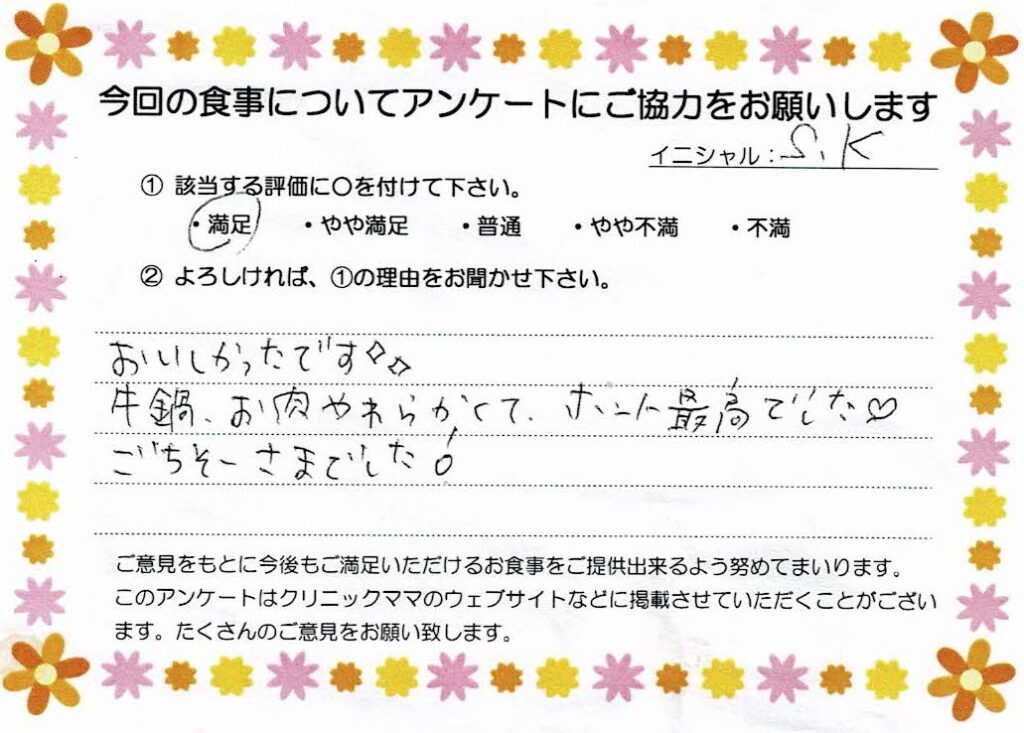 今回の食事についてアンケートにご協力をお願いします
イニシャル：S.K
① 該当する評価に〇を付けて下さい。
・満足 ・やや満足 ・普通 ・やや不満 ・不満
② よろしければ、①の理由をお聞かせ下さい。
おいしかったです✧✧
牛鍋、お肉やわらかくて、ホント最高でした♡
ごちそーさまでした!
ご意見をもとに今後もご満足いただけるお食事をご提供出来るよう努めてまいります。
このアンケートはクリニックママのウェブサイトなどに掲載させていただくことがござい
ます。たくさんのご意見をお願い致します。